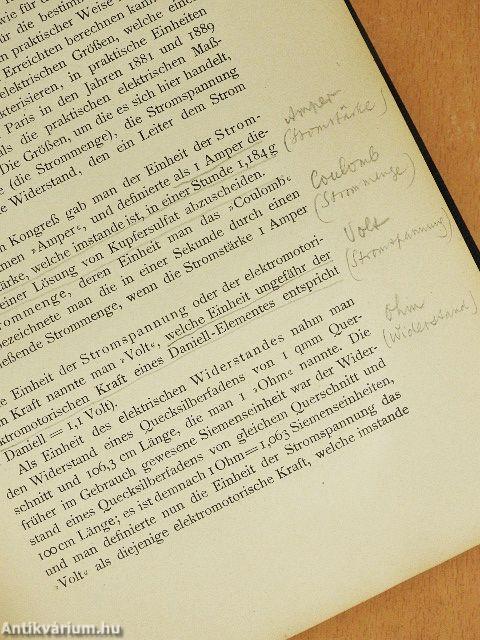 wie für d
für die bestimm
n praktischer Weise
Erreichten berechnen kann
elektrischen Größen, welche eine
kterisieren, in praktische Einheiten
Paris in den Jahren 1881 und 1889
als die praktischen elektrischen Maß-
Die Größen, um die es sich hier handelt,
e (die Strommenge), die Stromspannung
e Widerstand, den ein Leiter dem Strom
n Kongreß gab man der Einheit der Strom-
men „Amper“, und definierte als 1 Amper die-
tärke, welche imstande ist, in einer Stunde 1,184 g
einer Lösung von Kupfersulfat abzuscheiden.
rommenge, deren Einheit man das „Coulomb“
bezeichnete man die in einer Sekunde durch einen
ießende Strommenge, wenn die Stromstärke 1 Amper
e Einheit der Stromspannung oder der elektromotori-
n Kraft nannte man „Volt“, welche Einheit ungefähr der
ktromotorischen Kraft eines Daniell-Elementes entspricht
Daniell = 1,1 Volt).
Als Einheit des elektrischen Widerstandes nahm man
den Widerstand eines Quecksilberfadens von 1 qmm Quer-
schnitt und 106,3 cm Länge, die man 1 „Ohm“ nannte. Die
früher im Gebrauch gewesene Siemenseinheit war der Wider-
stand eines Quecksilberfadens von gleichem Querschnitt und
100 cm Länge; es ist demnach 1 Ohm = 1,063 Siemenseinheiten,
und man definierte nun die Einheit der Stromspannung das
„Volt“ als diejenige elektromotorische Kraft, welche imstande
Amper
(Stromstärke)
Coulomb
(Strommenge)
Volt
(Stromspannung)
Ohm
(Widerstand)
Antikvárium.hu